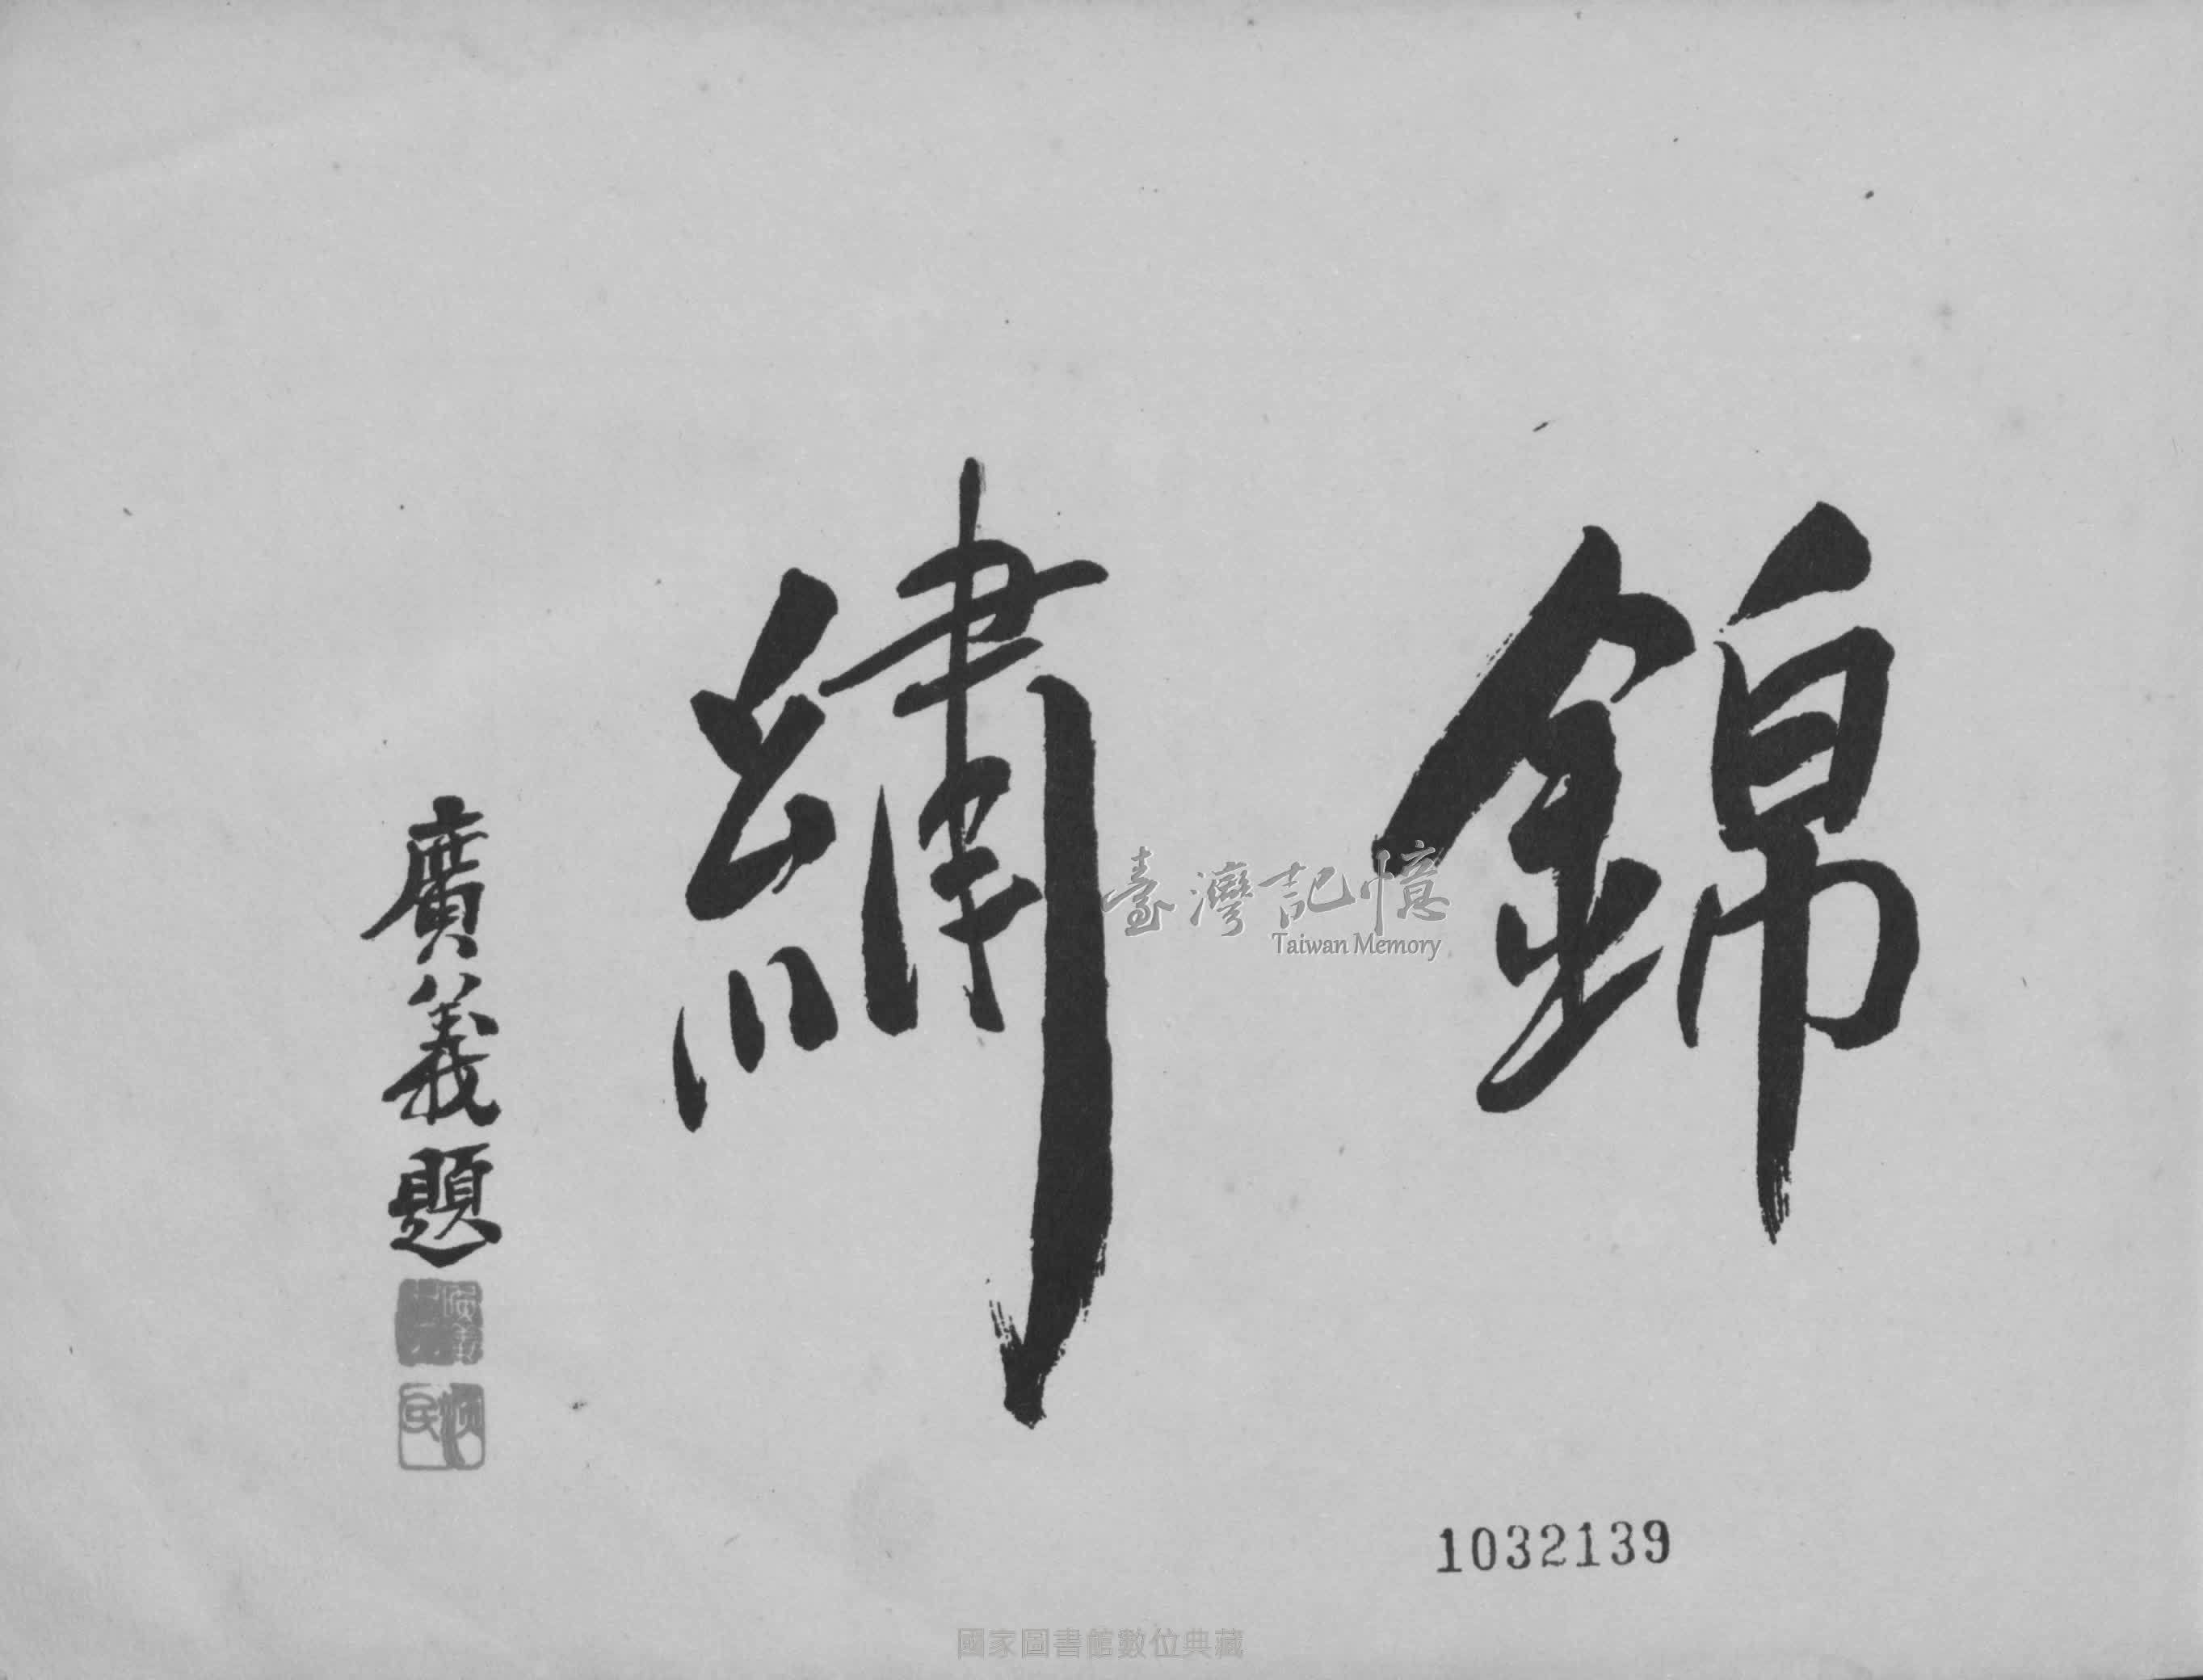 錦繡
廣義題
臺灣記憶
Taiwan Memory
1032139
國家圖書館數位典藏